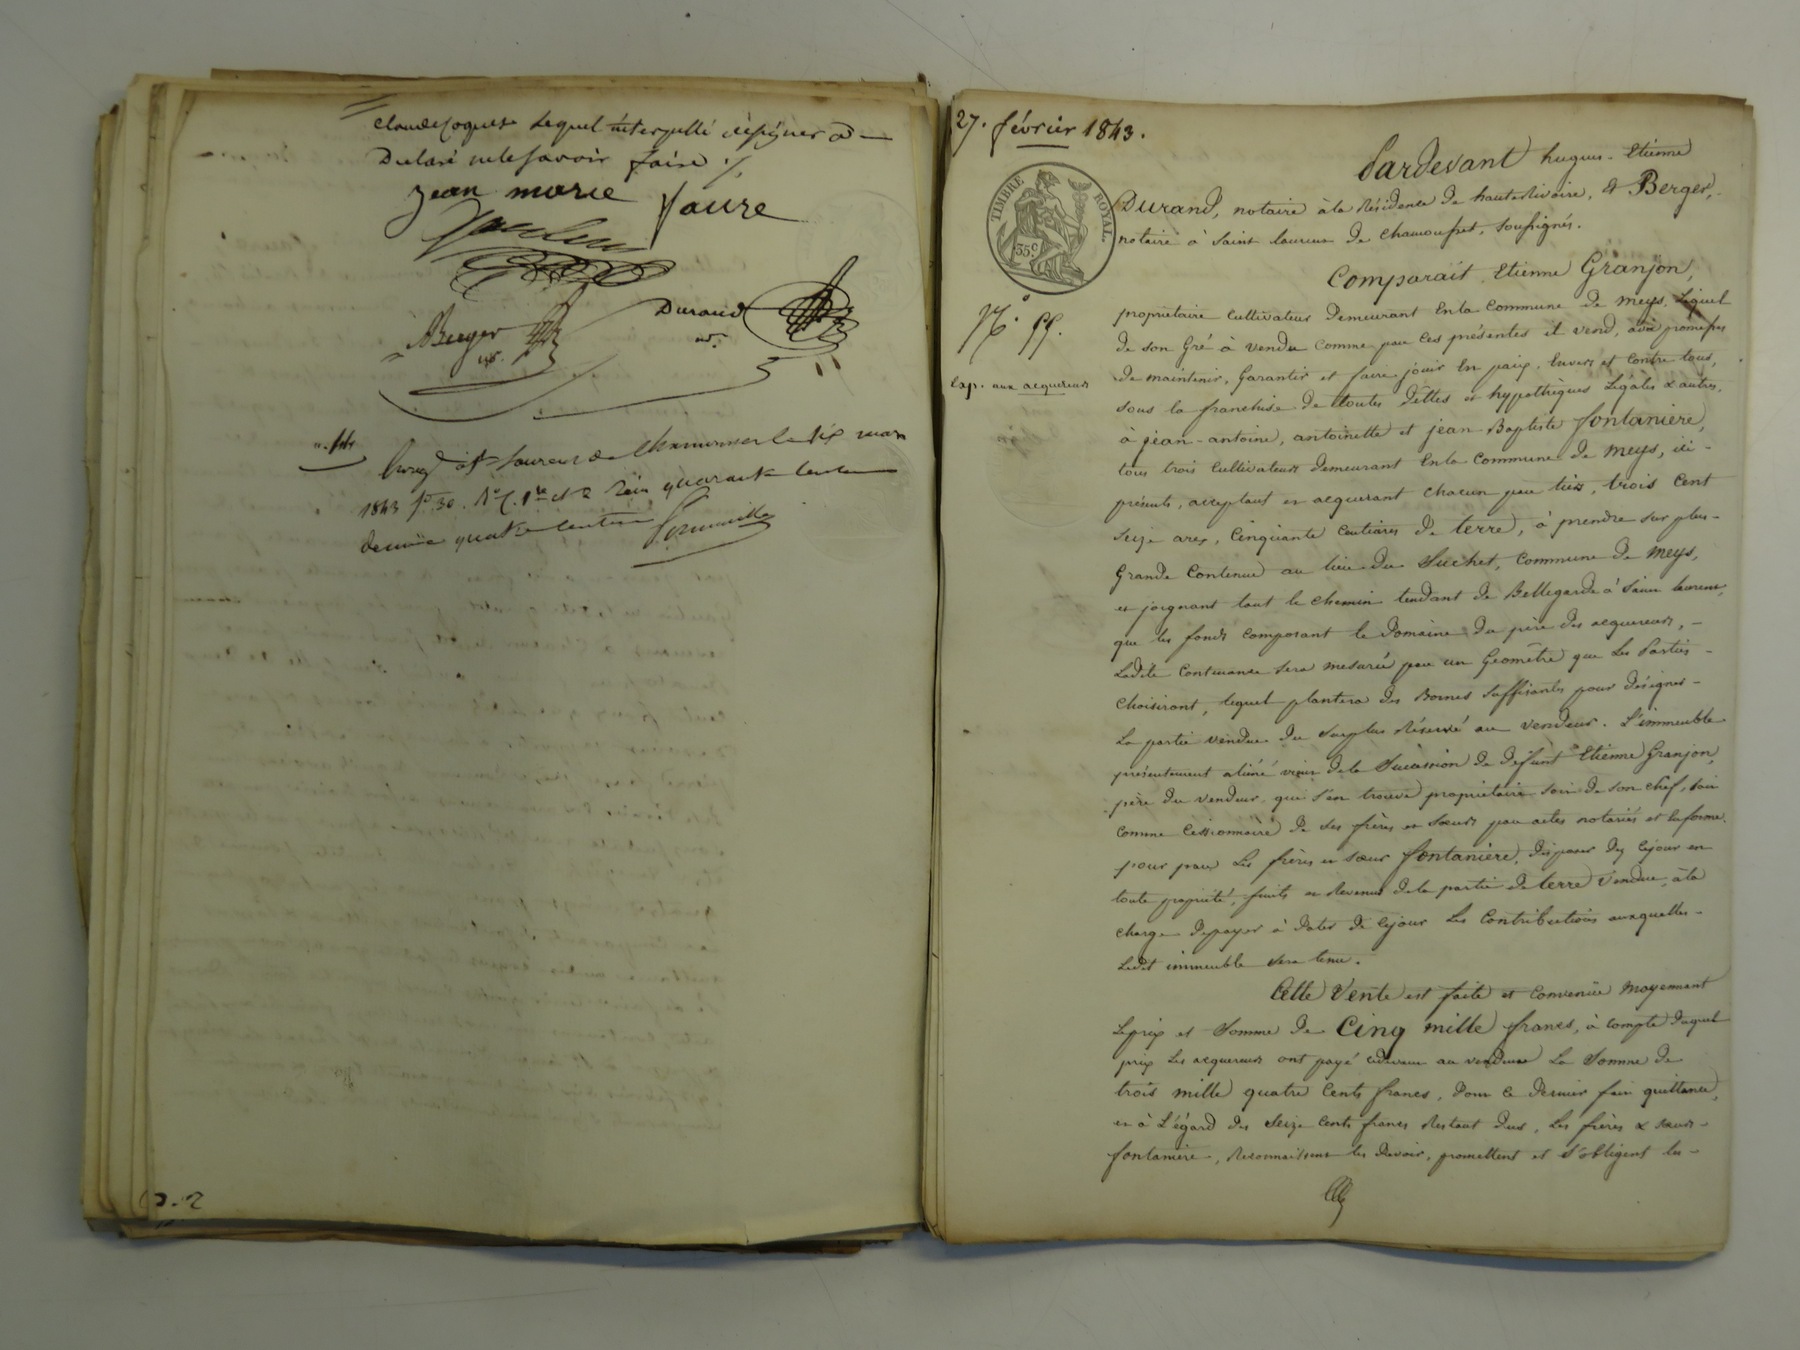 Claude Coquet lequel interpellé de signer a
Déclaré ne le savoir faire ·/.
jean marie faure
Berger
nre.
Durand
nre.
Enreg à St Laurent de Chamousset le dix mars
1843 fo 30. Ro C. 1re et 2 Reçu quarante
decime quatre centimes
27. février 1843.
TIMBRE ROYAL.
35c.
Pardevant hugues-Etienne
Durand, notaire à la Résidence de hauterivoire, et Berger,
notaire à Saint Laurent de Chamousset, soussignés.
Comparait Etienne Granjon,
propriétaire Cultivateur Demeurant En la Commune de meys, Lequel
de son Gré à vendu comme par Ces présentes il vend, avec promesses
de maintenir, Garantir et faire jouir En paix, Envers et Contre tous,
sous la franchise de toutes Dettes et hypothèques Légales & autres,
à jean-antoine, antoinette et jean Baptiste fontanière,
tous trois Cultivateurs demeurant En la Commune de meys, ici-
présents, acceptant et acquerant Chacun par tiers, trois Cent
Seize ares, Cinquante Centiares de terre, à prendre sur plus-
Grande Contenue au lieu du Suchet, Commune de meys,
et joignant tant le Chemin tendant de Bellegarde à Saint Laurent,
que les fonds Composant le Domaine du père des acquereurs, -
Ladite Contenance sera mesurée par un Géomètre que Les Parties -
Choisiront, lequel plantera des Bornes Suffisantes pour désigner -
La partie vendue du Surplus Réservé au vendeur. L'immeuble
présentement aliéné vient de la Succession de défunt Etienne Granjon,
père du vendeur, qui s'en trouve propriétaire soit de son Chef, soit
Comme Cessionnaire de ses frères et sœurs par actes notariés et En forme.
pour par Les frères et sœur fontanière, disposer dès Cejour en
toute propriété, fruits et Revenus de la partie de terre Vendue, à la
charge De payer à Dater de Cejour Les Contributions auxquelles -
Ledit immeuble sera tenu.
Cette Vente est faite et Convenue moyennant
Le prix et Somme de Cinq mille francs, à compte duquel
prix Les acquereurs ont payé cidevant au vendeur La Somme de
trois mille quatre Cents francs, Dont Ce dernier fait quittance,
et à L'égard des Seize Cents francs Restant Dus, Les frères & sœur -
fontanière, Reconnaissent les Devoir, promettent et S'obligent les -
No 55.
Exp. aux acquereurs